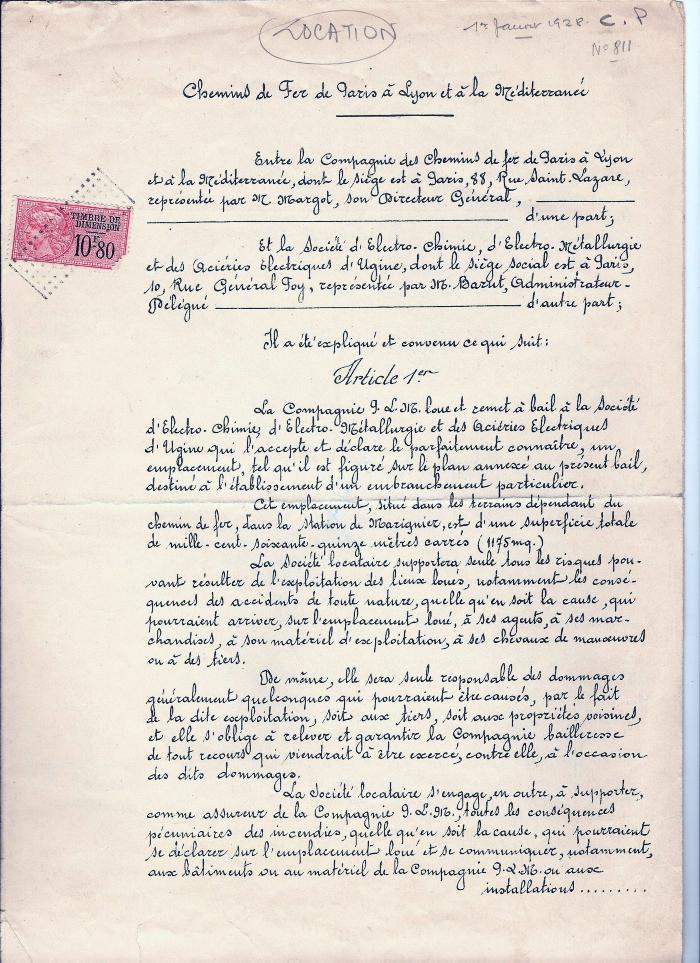 LOCATION
1er Janvier 1928 C. P
No 811
Chemins de Fer de Paris à Lyon et à la Méditerranée
TIMBRE DE
DIMENSION
10F80
Entre la Compagnie des Chemins de fer de Paris à Lyon
et à la Méditerranée, dont le siège est à Paris, 88, Rue Saint-Lazare,
représentée par M. Margot, son Directeur Général,
d'une part;
Et la Société d'Electro-Chimie, d'Electro-Métallurgie
et des Aciéries Electriques d'Ugine, dont le siège social est à Paris,
10, Rue Général Foy, représentée par M. Barut, Administrateur-
Délégué d'autre part;
Il a été expliqué et convenu ce qui suit:
Article 1er
La Compagnie P. L. M. loue et remet à bail à la Société
d'Electro-Chimie, d'Electro-Métallurgie et des Aciéries Electriques
d'Ugine qui l'accepte et déclare le parfaitement connaître, un
emplacement, tel qu'il est figuré sur le plan annexé au présent bail,
destiné à l'établissement d'un embranchement particulier.
Cet emplacement, situé dans les terrains dépendant du
chemin de fer, dans la station de Marignier, est d'une superficie totale
de mille-cent-soixante-quinze mètres carrés (1175mq.)
La Société locataire supportera seule tous les risques pou-
vant résulter de l'exploitation des lieux loués, notamment les consé-
quences des accidents de toute nature, quelle qu'en soit la cause, qui
pourraient arriver, sur l'emplacement loué, à ses agents, à ses mar-
chandises, à son matériel d'exploitation, à ses chevaux de manœuvres
ou à des tiers.
De même, elle sera seule responsable des dommages
généralement quelconques qui pourraient être causés, par le fait
de la dite exploitation, soit aux tiers, soit aux propriétés voisines,
et elle s'oblige à relever et garantir la Compagnie bailleresse
de tout recours qui viendrait à être exercé, contre elle, à l'occasion
des dits dommages.
La Société locataire s'engage, en outre, à supporter,
comme assureur de la Compagnie P. L. M., toutes les conséquences
pécuniaires des incendies, quelle qu'en soit la cause, qui pourraient
se déclarer sur l'emplacement loué et se communiquer, notamment,
aux bâtiments ou au matériel de la Compagnie P. L. M. ou aux
installations.........